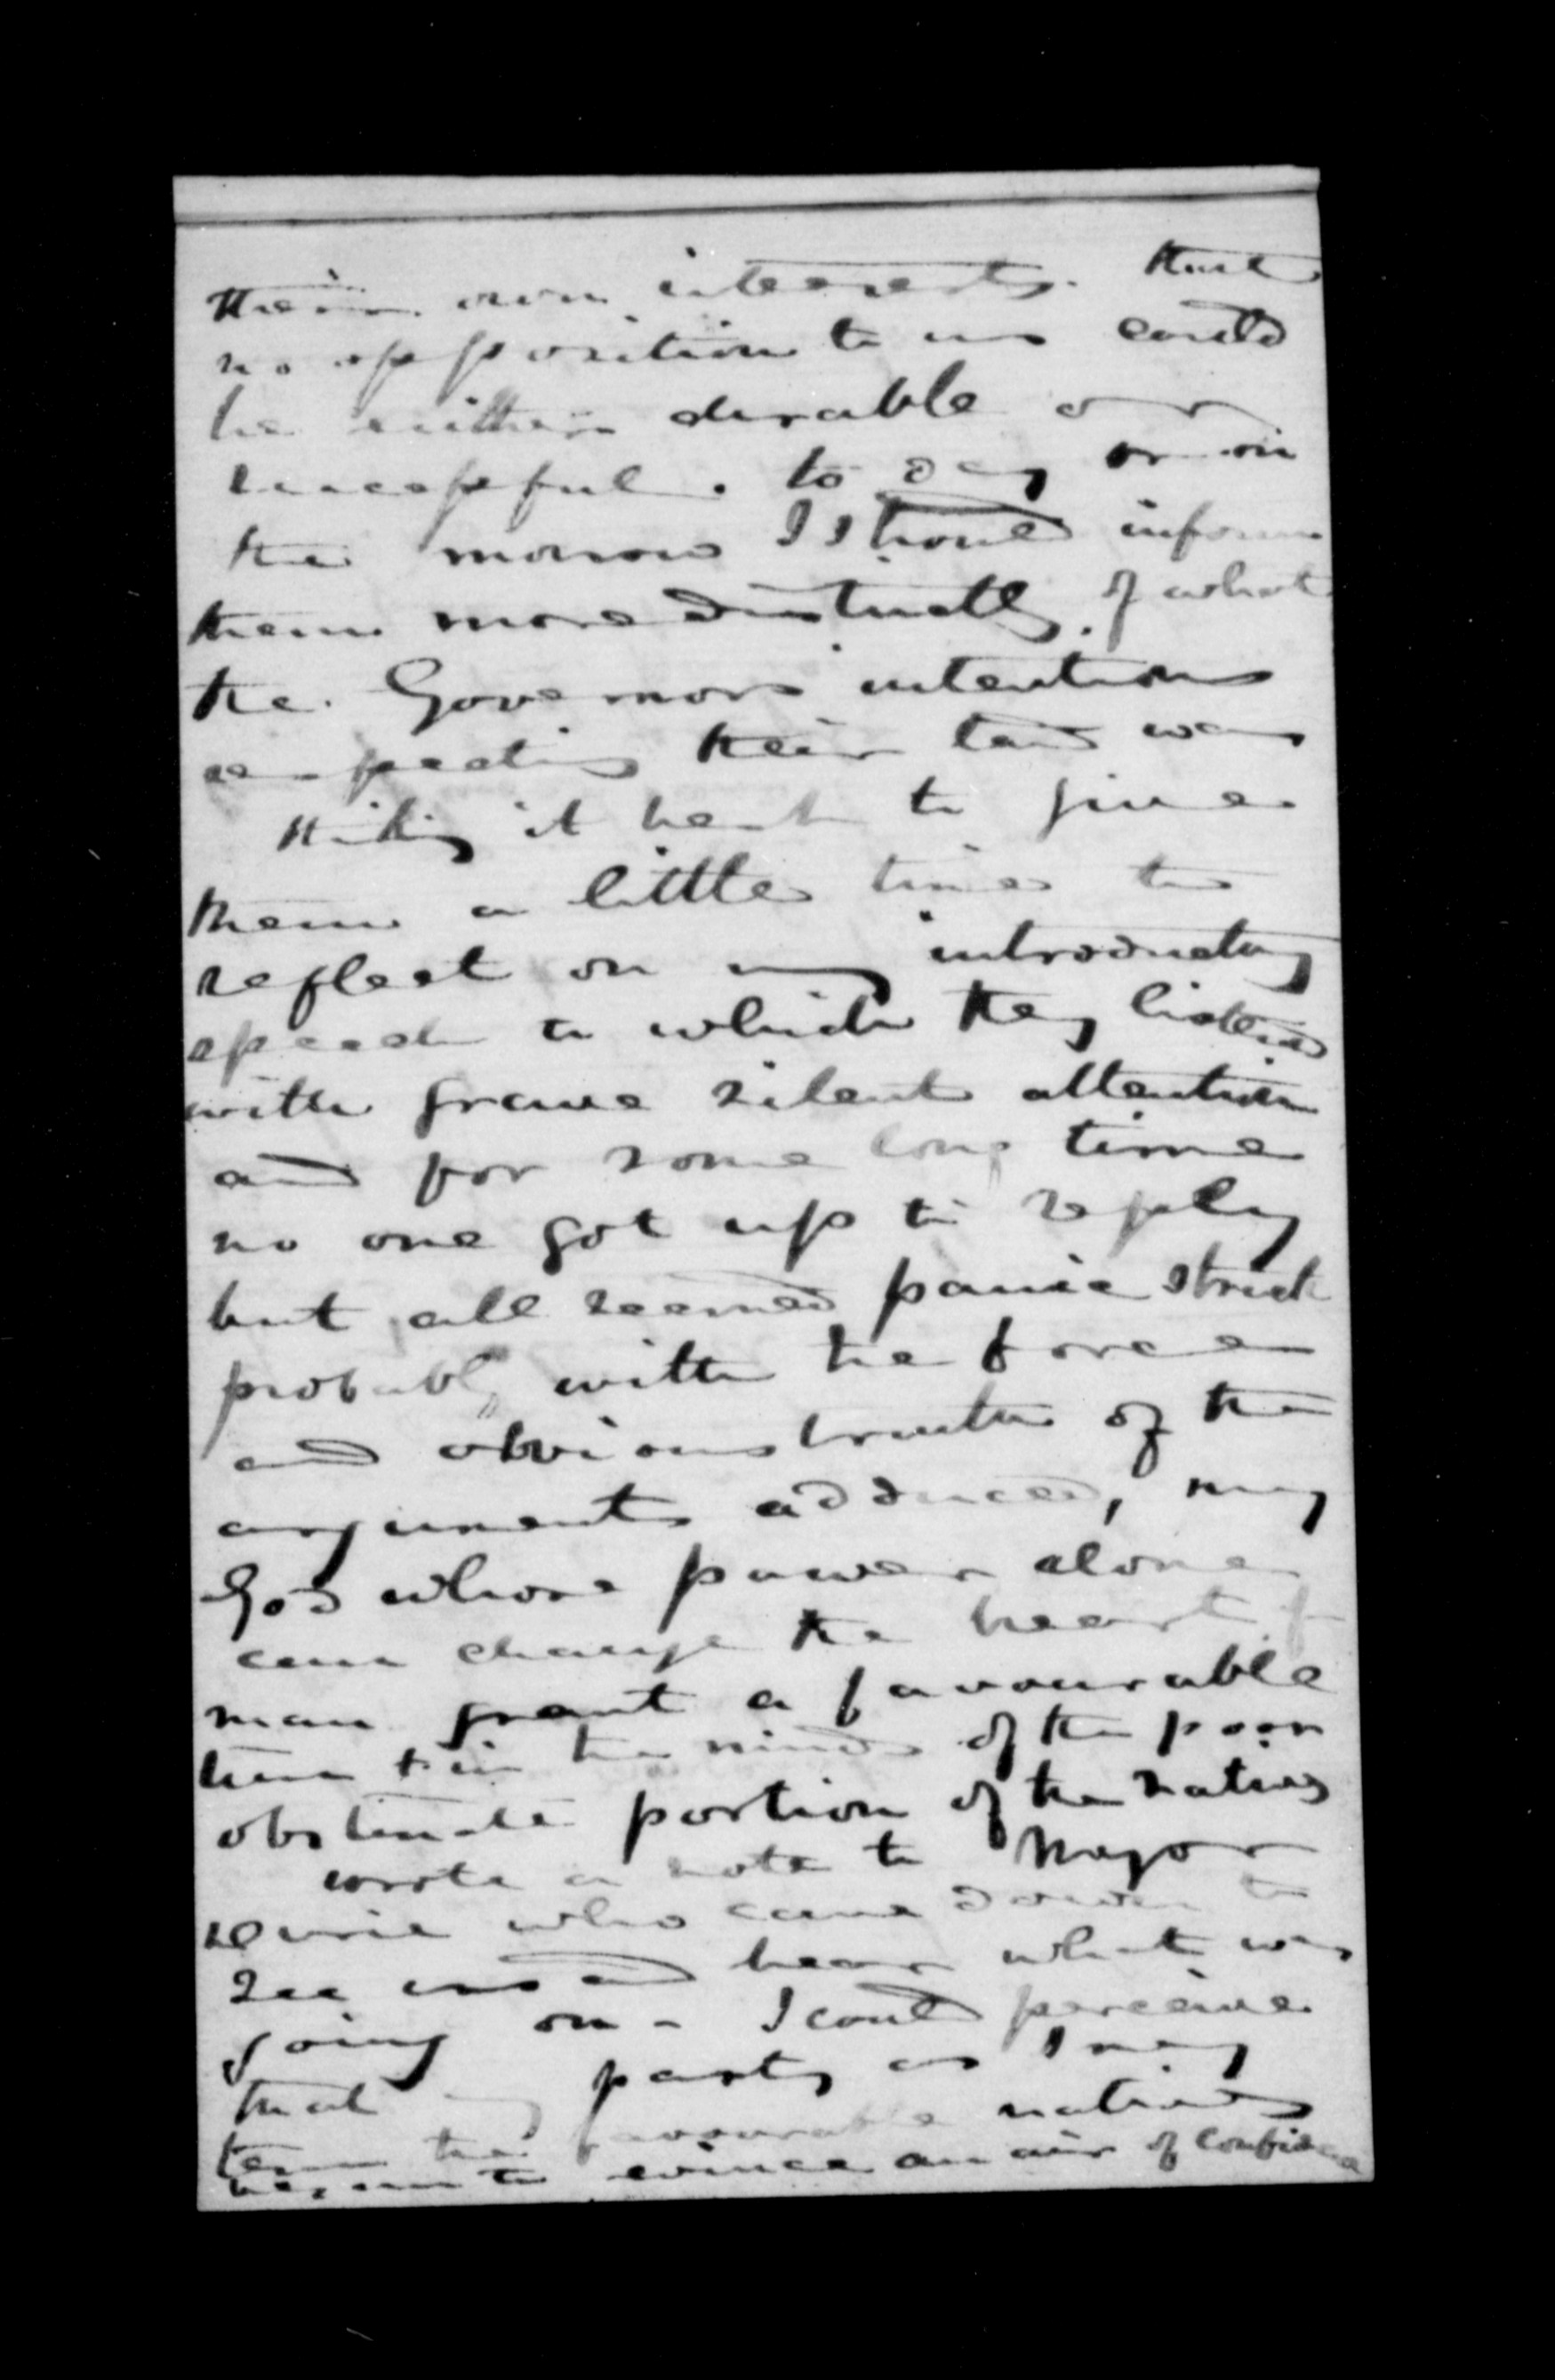 their own interests. that
no opposition to us could
be either durable or
successful. to day or on
the morrow I should inform
them more distinctly of what
the Governors intentions
respecting their land was
thinking it best to give
them a little time to
reflect on my introductory
speech to which they listened
with grave silent attention
and for some long time
no one got up to reply
but all seemed panic struck
probably with the force
and obvious truth of the
arguments adduced, may
God whose power alone
can change the heart of
man grant a favourable
turn to in the minds of the poor
obstinate portion of the natives
wrote a note to Major
who came down to
see us and hear what was
going on - I could perceive
that my party as I may
term the favourable natives
began to evince an air of confidence